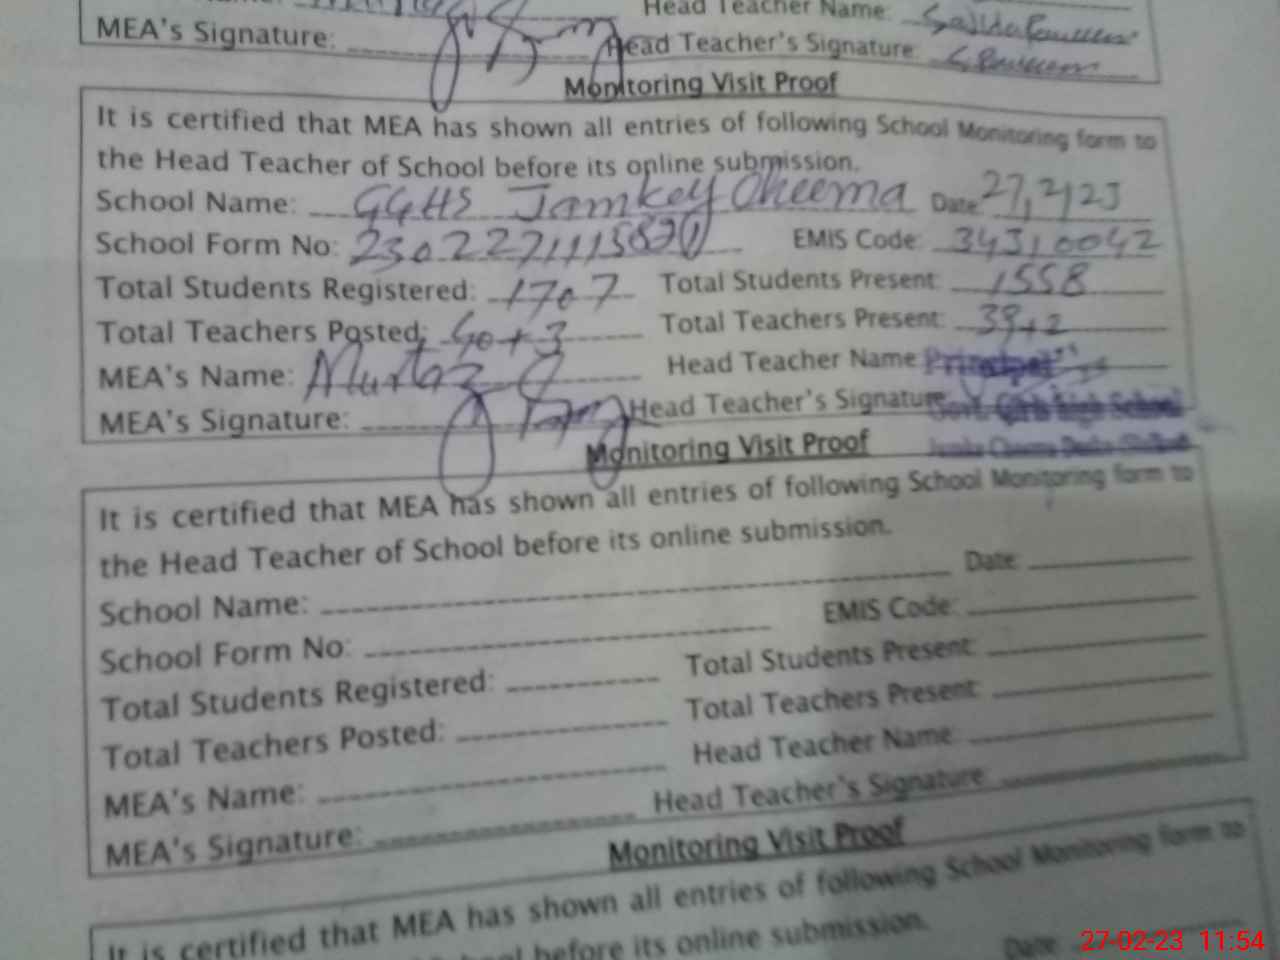 Head Teacher Name:
MEA's Signature: Head Teacher's Signature:
Monitoring Visit Proof
It is certified that MEA has shown all entries of following School Monitoring form to
the Head Teacher of School before its online submission.
School Name: GGHS Jamkey Cheema Date: 27,2,23
School Form No: EMIS Code: 34310042
Total Students Registered: 1707 Total Students Present: 1558
Total Teachers Posted: 40+3 Total Teachers Present: 39+2
MEA's Name: Murtaza Head Teacher Name: Principal
MEA's Signature: Head Teacher's Signature: Govt. Girls High School
Monitoring Visit Proof
It is certified that MEA has shown all entries of following School Monitoring form to
the Head Teacher of School before its online submission.
School Name: Date:
School Form No: EMIS Code:
Total Students Registered: Total Students Present:
Total Teachers Posted: Total Teachers Present:
MEA's Name: Head Teacher Name:
MEA's Signature: Head Teacher's Signature:
Monitoring Visit Proof
It is certified that MEA has shown all entries of following School Monitoring form to
School before its online submission.
Date:
27-02-23 11:54